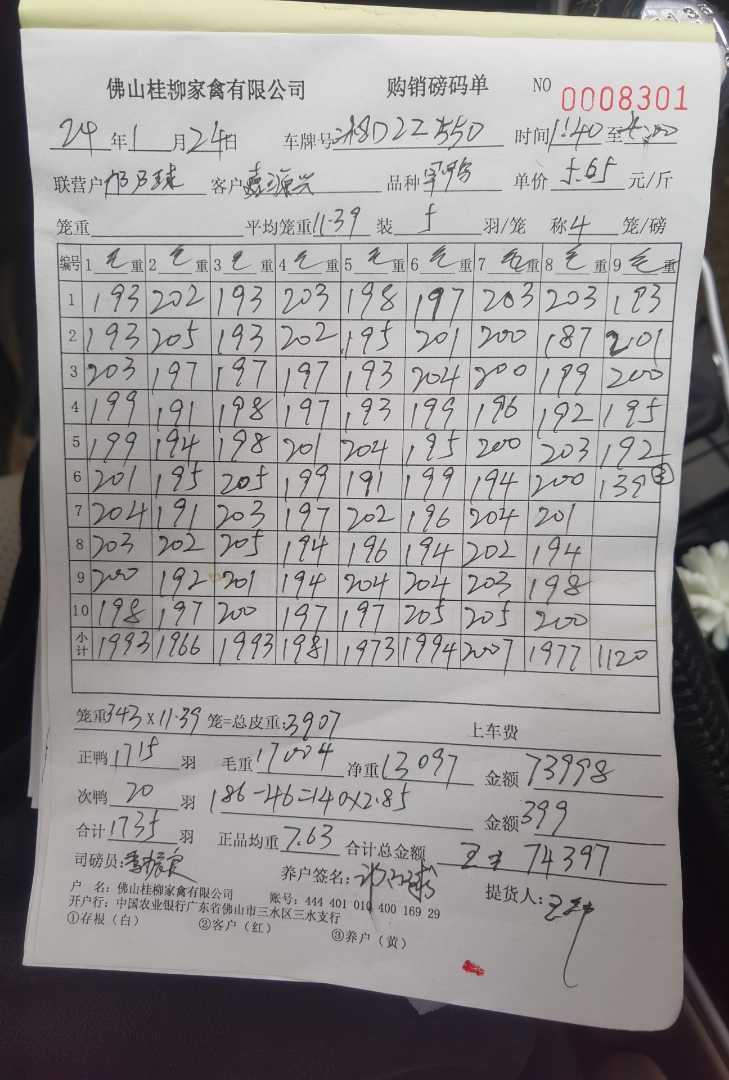 佛山桂柳家禽有限公司 购销磅码单 NO 0008301
24年1月24日 车牌号 D22550 时间1:40至
联营户 客户 源兴 品种 单价5.65元/斤
笼重 平均笼重11.39装5羽/笼 称4笼/磅
编号 1毛重 2毛重 3毛重 4毛重 5毛重 6毛重 7毛重 8毛重 9毛重
1 193 202 193 203 198 197 203 203 193
2 193 205 193 202 195 201 200 187 201
3 203 197 197 197 193 204 200 199 200
4 199 191 198 197 193 199 196 192 195
5 199 194 198 201 204 195 200 203 192
6 201 195 205 199 191 199 194 200 139③
7 204 191 203 197 202 196 204 201
8 203 202 205 194 196 194 202 194
9 200 192 201 194 204 204 203 198
10 198 197 200 197 197 205 205 200
小计 1993 1966 1993 1981 1973 1994 2007 1977 1120
笼重343×11.39笼=总皮重:3907 上车费
正鸭1715羽 毛重17004净重13097金额73998
次鸭20羽 186-46=140×2.85 金额399
合计1735羽 正品均重7.63合计总金额 74397
司磅员: 养户签名: 提货人:
户 名:佛山桂柳家禽有限公司 账号:444 401 010 400 169 29
开户行:中国农业银行广东省佛山市三水区三水支行
①存根(白) ②客户(红) ③养户(黄)